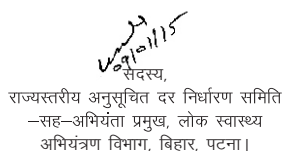 09/01/15
सदस्य,
राज्यस्तरीय अनुसूचित दर निर्धारण समिति
–सह–अभियंता प्रमुख, लोक स्वास्थ्य
अभियंत्रण विभाग, बिहार, पटना।